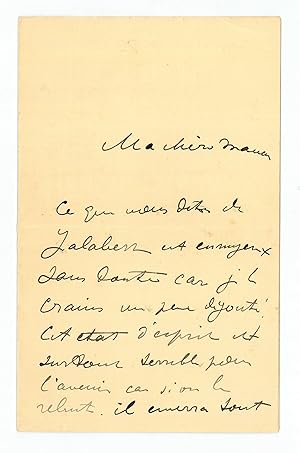 Ma chère maman
Ce que vous dites de
Jalabert est ennuyeux
sans doute car je le
crains un peu dégouté
Cet état d'esprit est
surtout terrible pour
l'avenir car si on le
rebute, il enverra tout